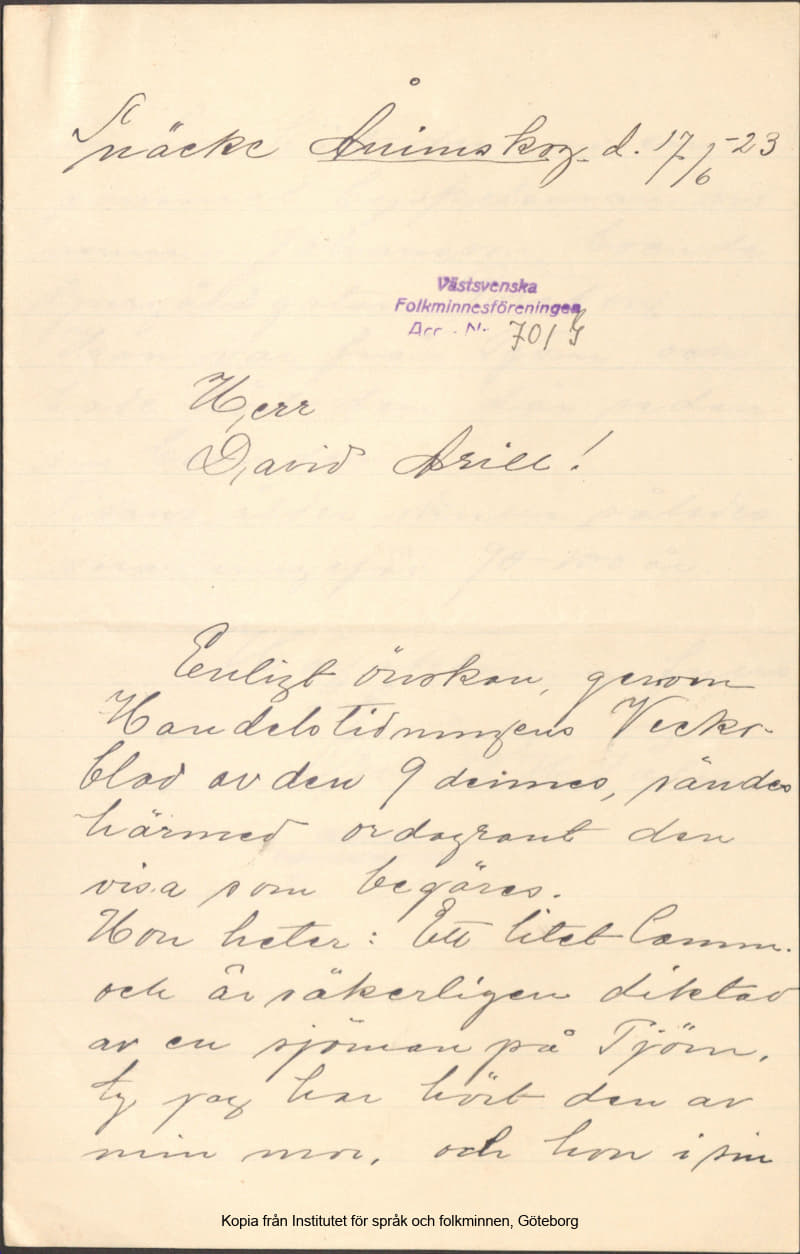 Snäcke Ånimskog. d. 17/6-23
Västsvenska
Folkminnesföreningen
Acc. Nr. 701
Herr
David Arill!
Enligt önskan, genom
Handelstidningens Vecko-
blad av den 9 deünes, sändes
härmed ordagrant den
visa som begäres.
Hon heter: Ett litet Lamm.
och är säkerligen diktad
av en sjöman på Tjörn,
ty jag har hört den av
min mor, och hon i sin
Kopia från Institutet för språk och folkminnen, Göteborg